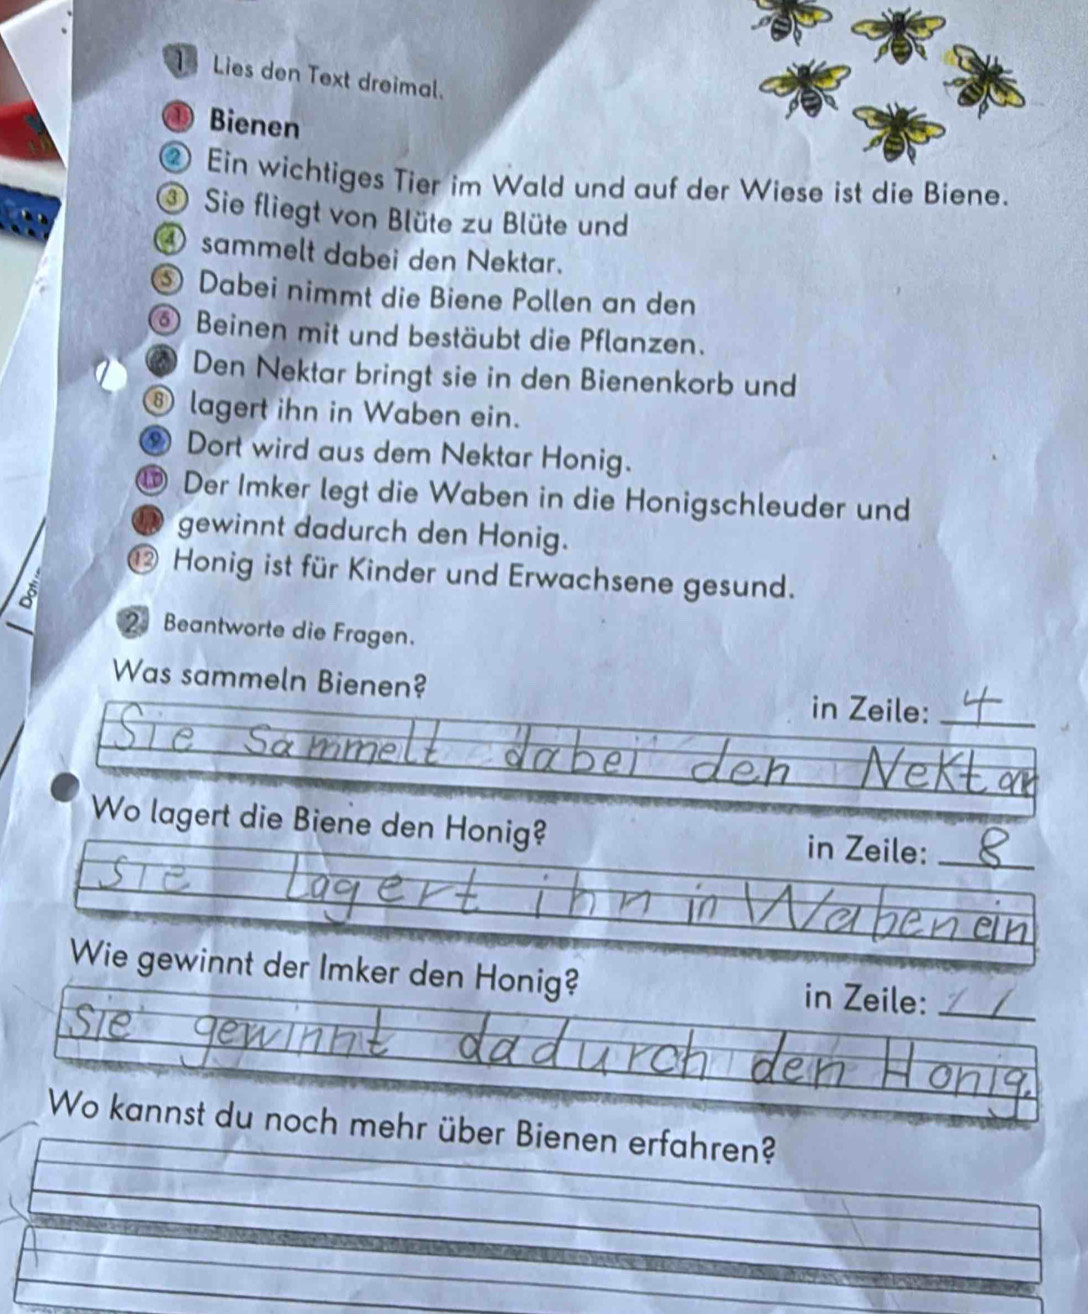 1 Lies den Text dreimal.
1 Bienen
2 Ein wichtiges Tier im Wald und auf der Wiese ist die Biene.
3 Sie fliegt von Blüte zu Blüte und
4 sammelt dabei den Nektar.
5 Dabei nimmt die Biene Pollen an den
6 Beinen mit und bestäubt die Pflanzen.
Den Nektar bringt sie in den Bienenkorb und
8 lagert ihn in Waben ein.
9 Dort wird aus dem Nektar Honig.
10 Der Imker legt die Waben in die Honigschleuder und
11 gewinnt dadurch den Honig.
12 Honig ist für Kinder und Erwachsene gesund.
2. Beantworte die Fragen.
Was sammeln Bienen?
in Zeile: 4
Sie sammelt dabei den Nektar
Wo lagert die Biene den Honig?
in Zeile: 8
sie lagert ihn in Waben ein
Wie gewinnt der Imker den Honig?
in Zeile: 11
sie gewinnt dadurch den Honig.
Wo kannst du noch mehr über Bienen erfahren?